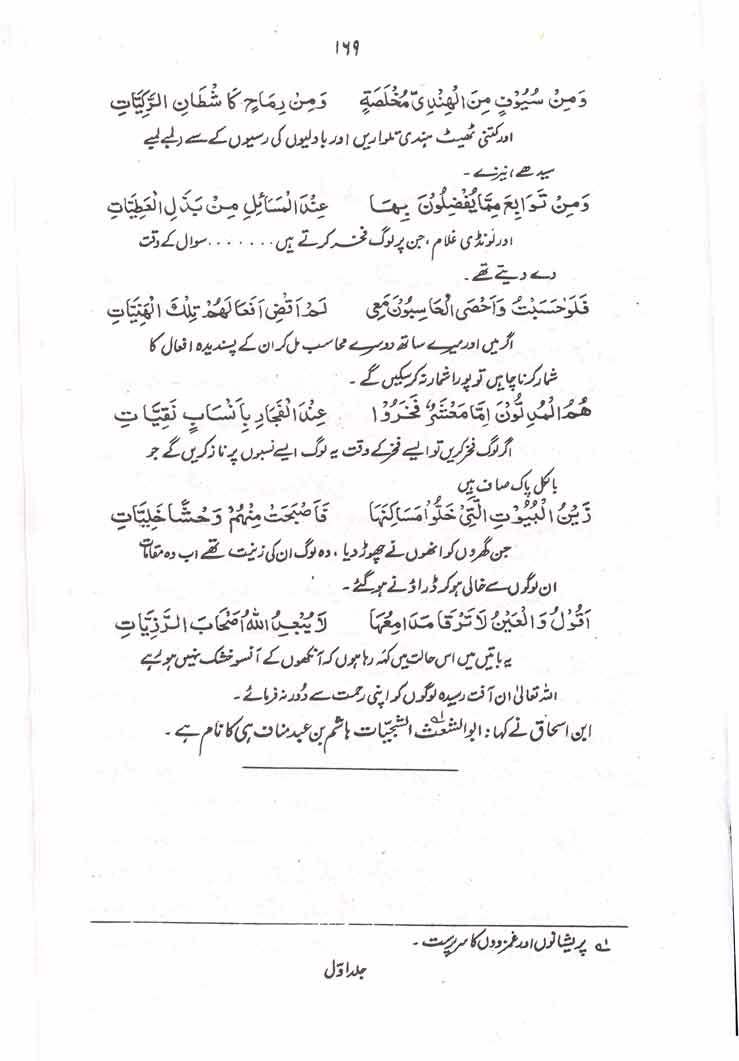 ۱۶۹
وَمِنْ سُيُوْفٍ مِنَ الْهِنْدِىِّ مُخْلَصَةٍ وَمِنْ رِمَاحٍ كَاشْطَانِ الرَّكِيَّاتِ
اور کتنی ٹھیٹ ہندی تلواریں اور باولیوں کی رسیوں کے سے (لمبے لمبے
سیدھے) نیزے۔
وَمِنْ تَوَابِعَ مِمَّا يُفْضِلُوْنَ بِهَا عِنْدَ الْمَسَائِلِ مِنْ بَذْلِ الْعَطِيَّاتِ
اور لونڈی غلام ، جن پر لوگ فخر کرتے ہیں ........ سوال کے وقت
دے دیتے تھے۔
فَلَوْ حَسَبْتُ وَاَحْصَى الْحَاسِبُوْنَ مَعِى لَمْ اَقْضِ اَفْعَالَهُمْ تِلْكَ الْهَنِيَّاتِ
اگر میں اور میرے ساتھ دوسرے محاسب مل کر ان کے پسندیدہ افعال کا
شمار کرنا چاہیں تو پورا شمار نہ کر سکیں گے۔
هُمُ الْمُدِلُّوْنَ اِمَّا مَعْشَرٌ فَخَرُوْا عِنْدَ الْفَخَارِ بِاَنْسَابٍ نَقِيَّاتِ
اگر لوگ فخر کریں تو ایسے فخر کے وقت یہ لوگ ایسے نسبوں پر ناز کریں گے جو
بالکل پاک صاف ہیں
زَيْنُ الْبُيُوْتِ الَّتِىْ خَلَّوْا مَسَاكِنَهَا فَاَصْبَحَتْ مِنْهُمْ وَحْشًا خَلِيَّاتِ
جن گھروں کو انھوں نے چھوڑ دیا ، وہ لوگ ان کی زینت تھے اب وہ مقامات
ان لوگوں سے خالی ہو کر ڈراؤنے ہو گئے۔
اَقُوْلُ وَالْعَيْنُ لَا تَرْقَا مَدَامِعُهَا لَا يُبْعِدُ اللهُ اَصْحَابَ الرَّزِيَّاتِ
یہ باتیں میں اس حالت میں کہہ رہا ہوں کہ آنکھوں کے آنسو خشک نہیں ہو رہے
اللہ تعالیٰ ان آفت رسیدہ لوگوں کو اپنی رحمت سے دُور نہ فرمائے۔
ابن اسحاق نے کہا : ابوالشعث الشجیّات ہاشم بن عبد مناف ہی کا نام ہے۔
لہ پریشانوں اور غمزدوں کا سرپرست۔
جلد اوّل